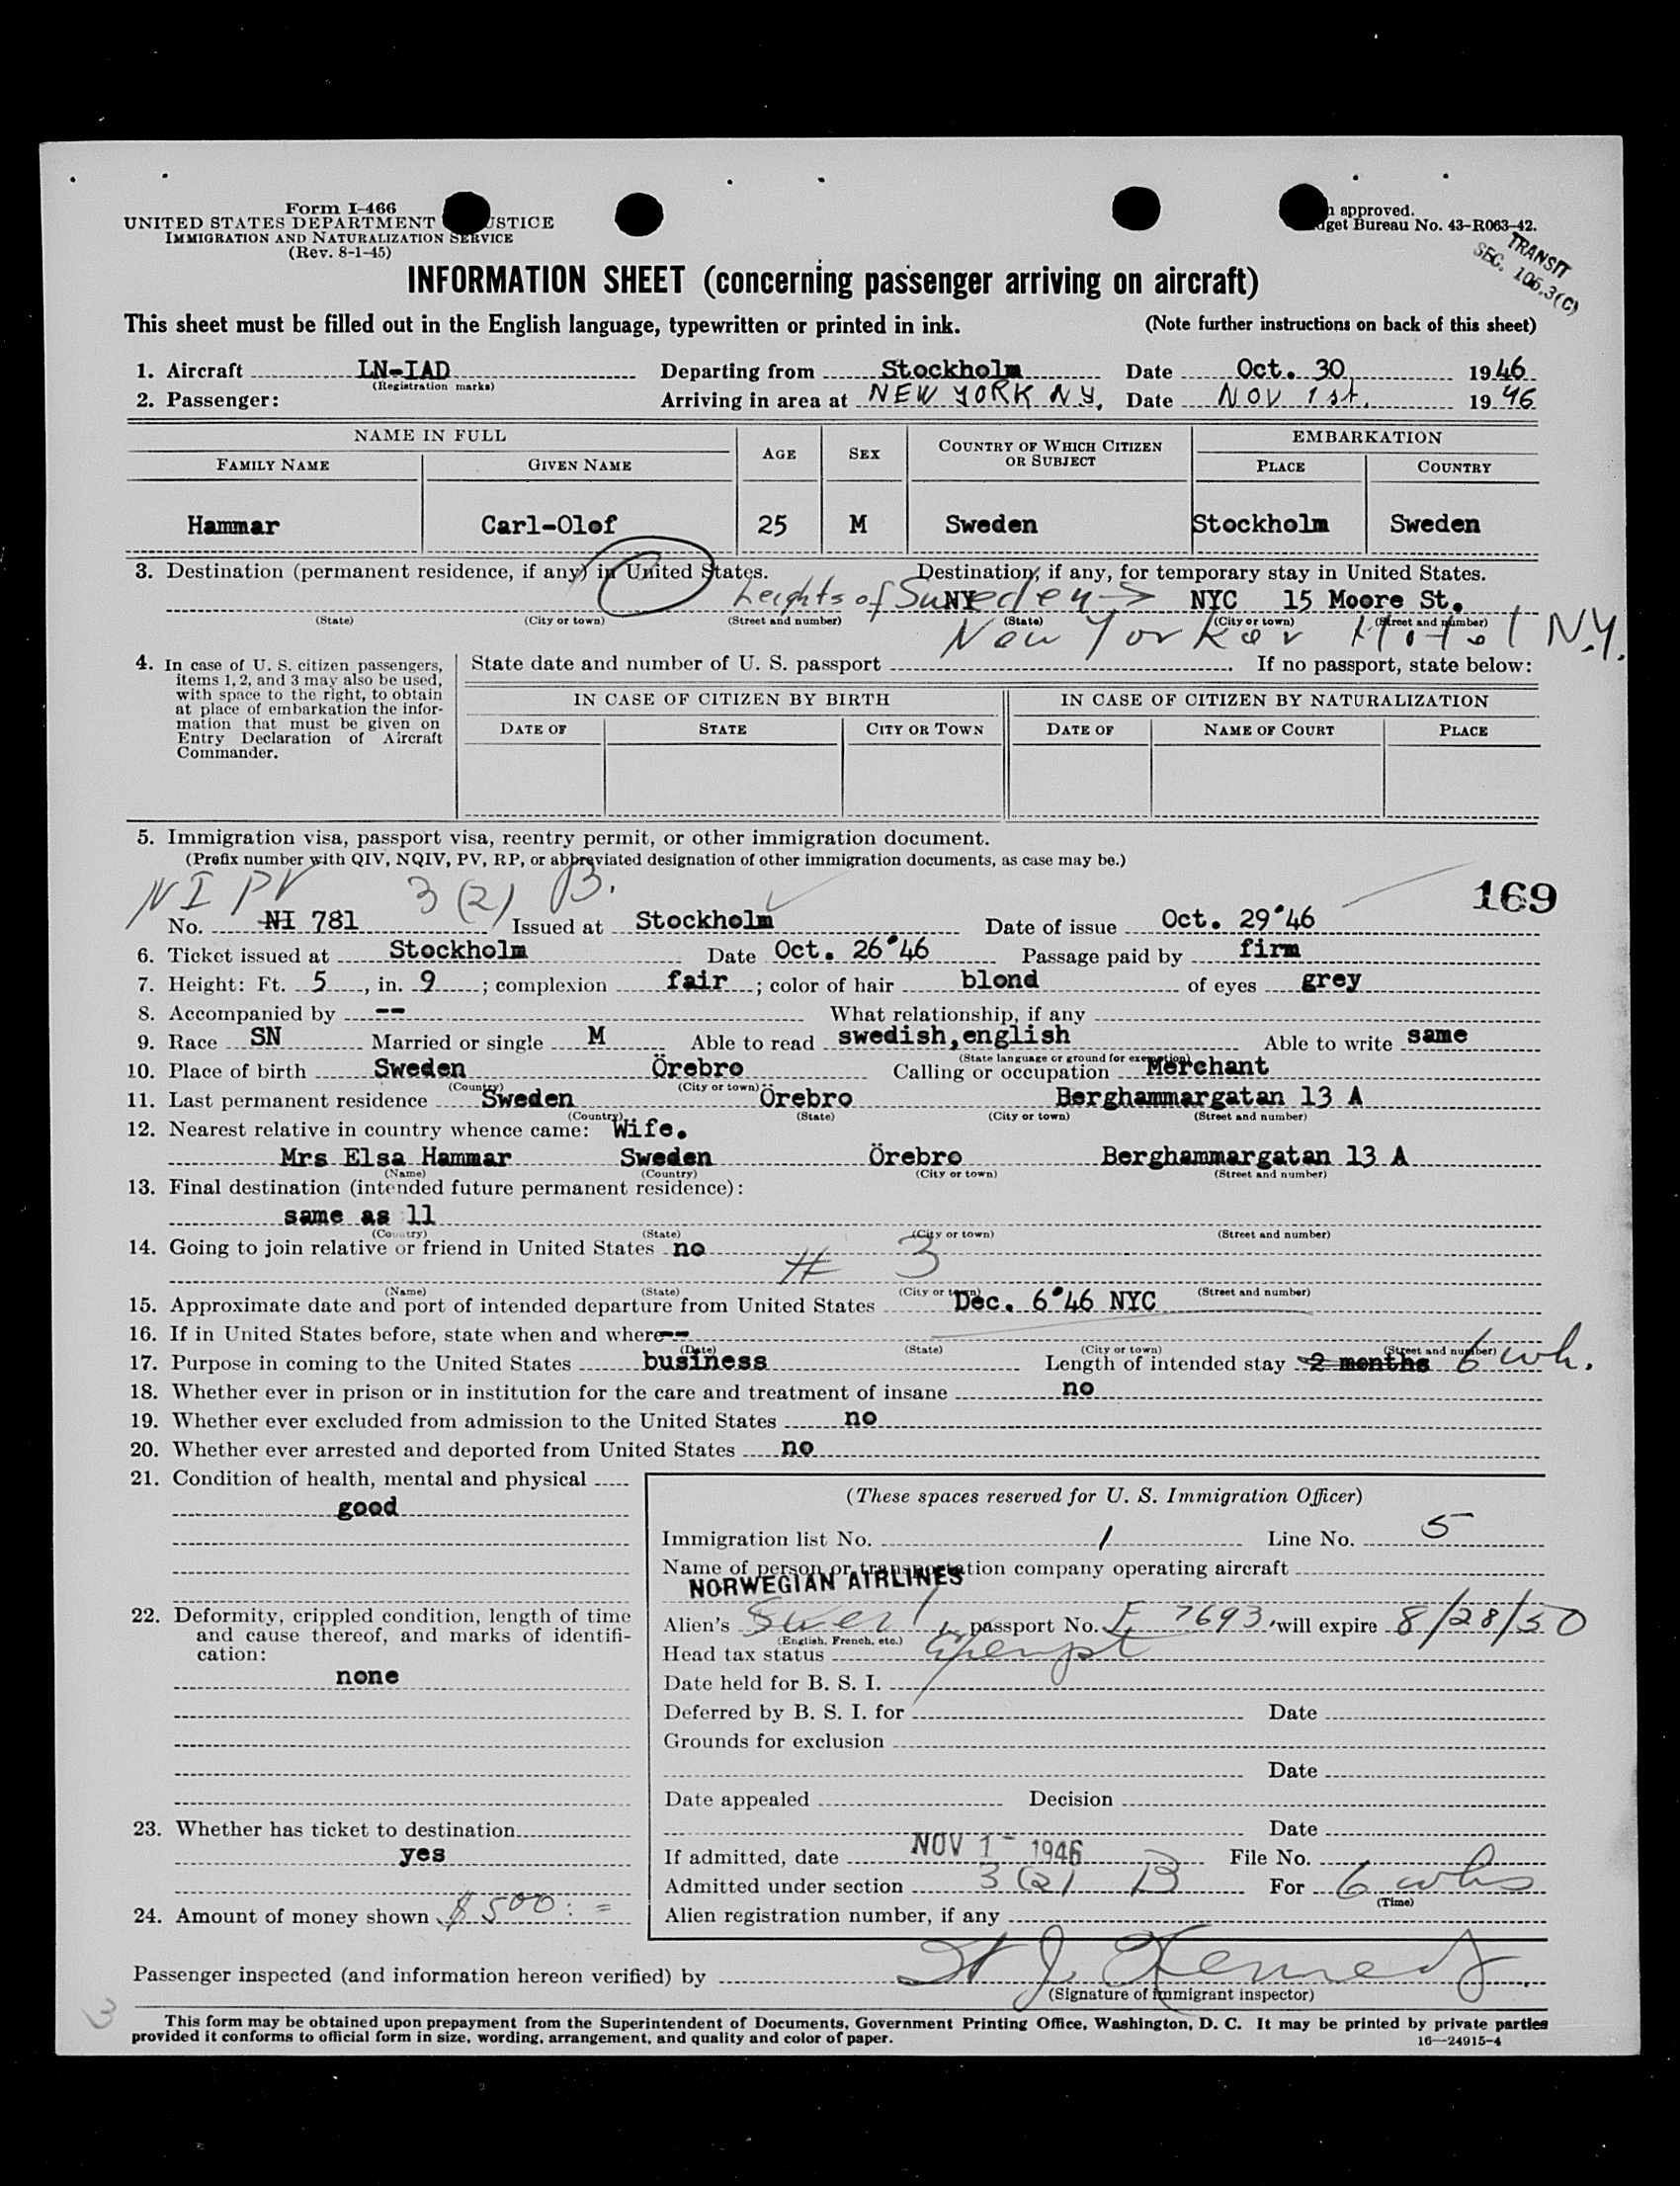 Form I-466
UNITED STATES DEPARTMENT USTICE
IMMIGRATION AND NATURALIZATION SERVICE
(Rev. 8-1-45)
approved.
get Bureau No. 43-R063-42.
TRANSIT
SEC. 106.3(C)
INFORMATION SHEET (concerning passenger arriving on aircraft)
This sheet must be filled out in the English language, typewritten or printed in ink. (Note further instructions on back of this sheet)
1. Aircraft LN-IAD Departing from Stockholm Date Oct. 30 1946
(Registration marks)
2. Passenger: Arriving in area at NEW YORK N.Y. Date NOV 1st. 1946
NAME IN FULL AGE SEX COUNTRY OF WHICH CITIZEN OR SUBJECT EMBARKATION
FAMILY NAME GIVEN NAME PLACE COUNTRY
Hammar Carl-Olof 25 M Sweden Stockholm Sweden
3. Destination (permanent residence, if any) in United States. Destination, if any, for temporary stay in United States.
heights of Sweden NY NYC 15 Moore St.
(State) (City or town) (Street and number) (State) (City or town) (Street and number)
New Yorker Hotel N.Y.
4. In case of U. S. citizen passengers, items 1, 2, and 3 may also be used, with space to the right, to obtain at place of embarkation the information that must be given on Entry Declaration of Aircraft Commander.
State date and number of U. S. passport If no passport, state below:
IN CASE OF CITIZEN BY BIRTH IN CASE OF CITIZEN BY NATURALIZATION
DATE OF STATE CITY OR TOWN DATE OF NAME OF COURT PLACE
5. Immigration visa, passport visa, reentry permit, or other immigration document.
(Prefix number with QIV, NQIV, PV, RP, or abbreviated designation of other immigration documents, as case may be.)
NI PV 3(2) B. 169
No. NI 781 Issued at Stockholm Date of issue Oct. 29'46
6. Ticket issued at Stockholm Date Oct. 26'46 Passage paid by firm
7. Height: Ft. 5, in. 9; complexion fair; color of hair blond of eyes grey
8. Accompanied by -- What relationship, if any
9. Race SN Married or single M Able to read swedish,english Able to write same
(State language or ground for exemption)
10. Place of birth Sweden Örebro Calling or occupation Merchant
(Country) (City or town)
11. Last permanent residence Sweden Örebro Berghammargatan 13 A
(Country) (State) (City or town) (Street and number)
12. Nearest relative in country whence came: Wife.
Mrs Elsa Hammar Sweden Örebro Berghammargatan 13 A
(Name) (Country) (City or town) (Street and number)
13. Final destination (intended future permanent residence):
same as 11
(Country) (State) (City or town) (Street and number)
14. Going to join relative or friend in United States no
# 3
(Name) (State) (City or town) (Street and number)
15. Approximate date and port of intended departure from United States Dec. 6'46 NYC
16. If in United States before, state when and where--
(Date) (State) (City or town) (Street and number)
17. Purpose in coming to the United States business Length of intended stay 2 months 6 wk.
18. Whether ever in prison or in institution for the care and treatment of insane no
19. Whether ever excluded from admission to the United States no
20. Whether ever arrested and deported from United States no
21. Condition of health, mental and physical
good
22. Deformity, crippled condition, length of time and cause thereof, and marks of identification:
none
23. Whether has ticket to destination
yes
24. Amount of money shown $500:=
(These spaces reserved for U. S. Immigration Officer)
Immigration list No. 1 Line No. 5
Name of person or transportation company operating aircraft
NORWEGIAN AIRLINES
Alien's passport No. 7693 will expire 8/28/50
(English, French, etc.)
Head tax status Exempt
Date held for B. S. I.
Deferred by B. S. I. for Date
Grounds for exclusion
Date
Date appealed Decision
Date
If admitted, date NOV 1- 1946 File No.
Admitted under section 3(2) B For 6 wks
(Time)
Alien registration number, if any
Passenger inspected (and information hereon verified) by J. Kennedy
(Signature of immigrant inspector)
3
This form may be obtained upon prepayment from the Superintendent of Documents, Government Printing Office, Washington, D. C. It may be printed by private parties
provided it conforms to official form in size, wording, arrangement, and quality and color of paper. 16—24915-4